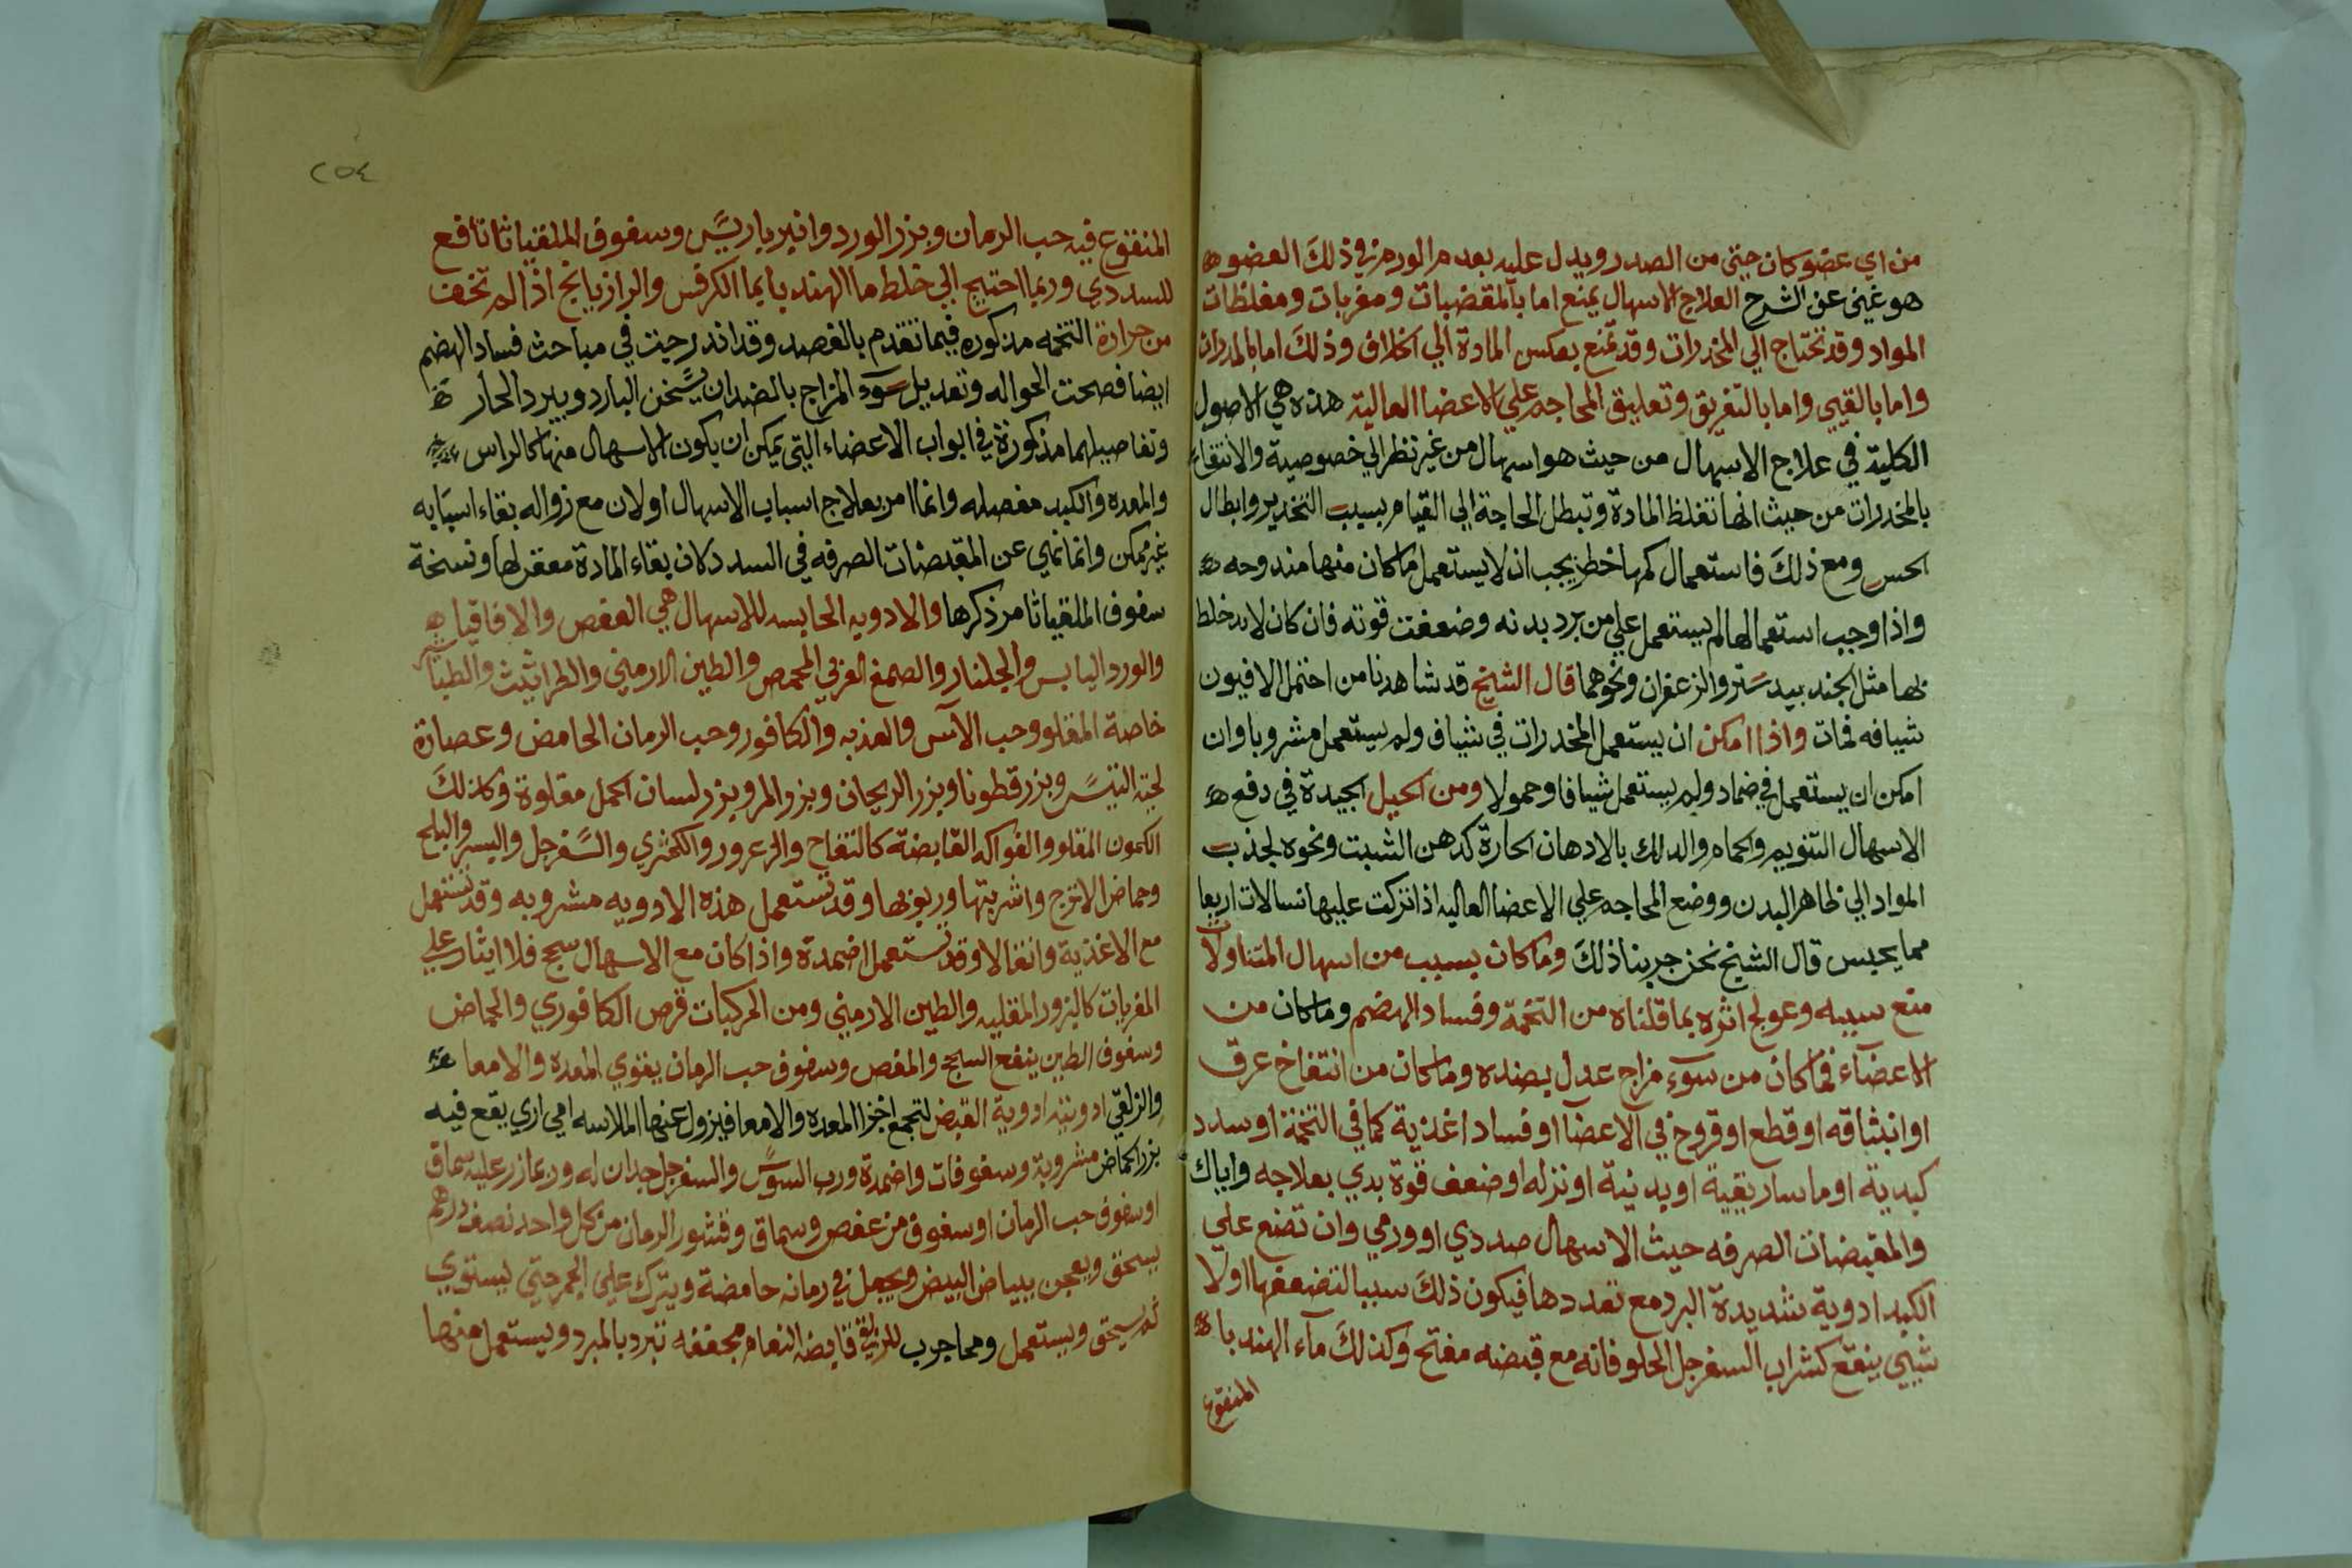 من اي عضو كان حتى من الصدر ويدل عليه بعدم الورم في ذلك العضو
هو غني عن الشرح العلاج الاسهال يمنع اما بالمقضبات ومغريات ومغلظات
المواد وقد تحتاج الي المخدرات وقد تمنع بعكس المادة الي اخلاف وذلك اما بالمدرات
واما بالقيي واما بالتعريق وتعليق المحاجم علي الاعضا العالية هذه هي الاصول
الكلية في علاج الاسهال من حيث هو اسهال من غير نظر الي خصوصية والانتفاء
بالمخدرات من حيث انها تغلظ المادة وتبطل الحاجة الي القيام بسبب التخدير وابطال
الحس ومع ذلك فاستعمال كمها خطر يجب ان لا يستعمل ما كان منها مندوحه
واذا وجب استعمالها لم يستعمل علي من برد بدنه وضعفت قوته فان كان لابد خلط
بها مثل الجند بيدستر والزعفران ونحوهما قال الشيخ قد شاهدنا من احتمل الافيون
شيافه فمات واذا امكن ان يستعمل المخدرات في شياف ولم يستعمل مشروبا وان
امكن ان يستعمل في ضماد ولم يستعمل شيافا وحمولا ومن الحيل الجيدة في دفع
الاسهال التنويم والحمام والدلك بالادهان الحارة كدهن الشبت ونحوه لجذب
المواد الي ظاهر البدن ووضع المحاجم علي الاعضا العاليه اذا تركت عليها نسالات اربعا
مما يحبس قال الشيخ نحن جربنا ذلك وما كان بسبب من اسهال المتناولات
منع سببه وعولج اثره بما قلناه من التخمة وفساد الهضم وما كان من
الاعضآء فما كان من سوء مزاج عدل بضده وما كان من انتفاخ عرق
او انبثاقه او قطع او قروح في الاعضآ او فساد اغذية كما في التخمة او سدد
كبدية او ماساريقية او بدنية او نزله او ضعف قوة بدي بعلاجه واياك
والمقبضات الصرفه حيث الاسهال صددي او ورمي وان تضع علي
الكبد ادوية شديدة البرد مع تعددها فيكون ذلك سببا لتضعفها اولا
شيي ينفع كشراب السفرجل الحلو فانه مع قبضه مفتح وكذلك مآء الهندبا
المنقوع
٢٥٤
المنقوع فيه حب الرمان وبزر الورد وانبرباريس وسفوف الملقياثا نافع
للسددي وربما احتيج الي خلط ما الهندبا بما الكرفس والرازيانج اذا لم تخف
من حرارة التخمه مذكوره فيما تقدم بالقصد وقد اندرجت في مباحث فساد الهضم
ايضا فصحت الحواله وتعديل سوء المزاج بالضد ان يسخن البارد ويبرد الحار
وتفاصيلهما مذكورة في ابواب الاعضاء التي يمكن ان يكون الاسهال منها كالراس
والمعده والكبد مفصله وانما امر بعلاج اسباب الاسهال اولا لان مع زواله بقاء اسبابه
غير ممكن وانما نهي عن المقبضات الصرفه في السدد لان بقاء المادة معفن لها ونسخة
سفوف الملقياثا مر ذكرها والادويه الحابسه للاسهال هي العفص والاقاقيا
والورد اليابس والجلنار والصمغ العربي المحمص والطين الارمني والطراثيث والطباشير
خاصة المقلو وحب الآس والعذبه والكافور وحب الرمان الحامض وعصارة
لحية التيس وبزر قطونا وبزر الريحان وبزر المر وبزر لسان الحمل مقلوة وكذلك
الكمون المقلو والفواكه القابضة كالتفاح والزعرور والكمثري والسفرجل والبسر والبلح
وحماض الاترج واشربتها وربوبها وقد تستعمل هذه الادويه مشروبه وقد تستعمل
مع الاغذية وانفالا وقد تستعمل اضمدة واذا كان مع الاسهال سحج فلا ايثار علي
المغريات كالبزور المقليه والطين الارمني ومن المركبات قرص الكافوري والحماض
وسفوف الطين ينفع السحج والمغص وسفوف حب الرمان يقوي المعده والامعا
والزلقي ادويته ادوية القبض لتجمع اخزا المعده والامعا فيزول عنها الملاسه امي اري يقع فيه
بزر الحماض مشروبة وسفوفات واضمدة ورب السوس والسفرجل جيدان له وربما زر عليه سماق
او سفوف حب الرمان او سفوف من عفص وسماق وقشور الرمان من كل واحد نصف درهم
يسحق ويعجن ببياض البيض ويجعل في رمانه حامضة ويترك علي الجمر حتي يستوي
ثم يسحق ويستعمل ومما جرب للزلق قابضه النعام مجففه تبرد بالمبرد ويستعمل منها